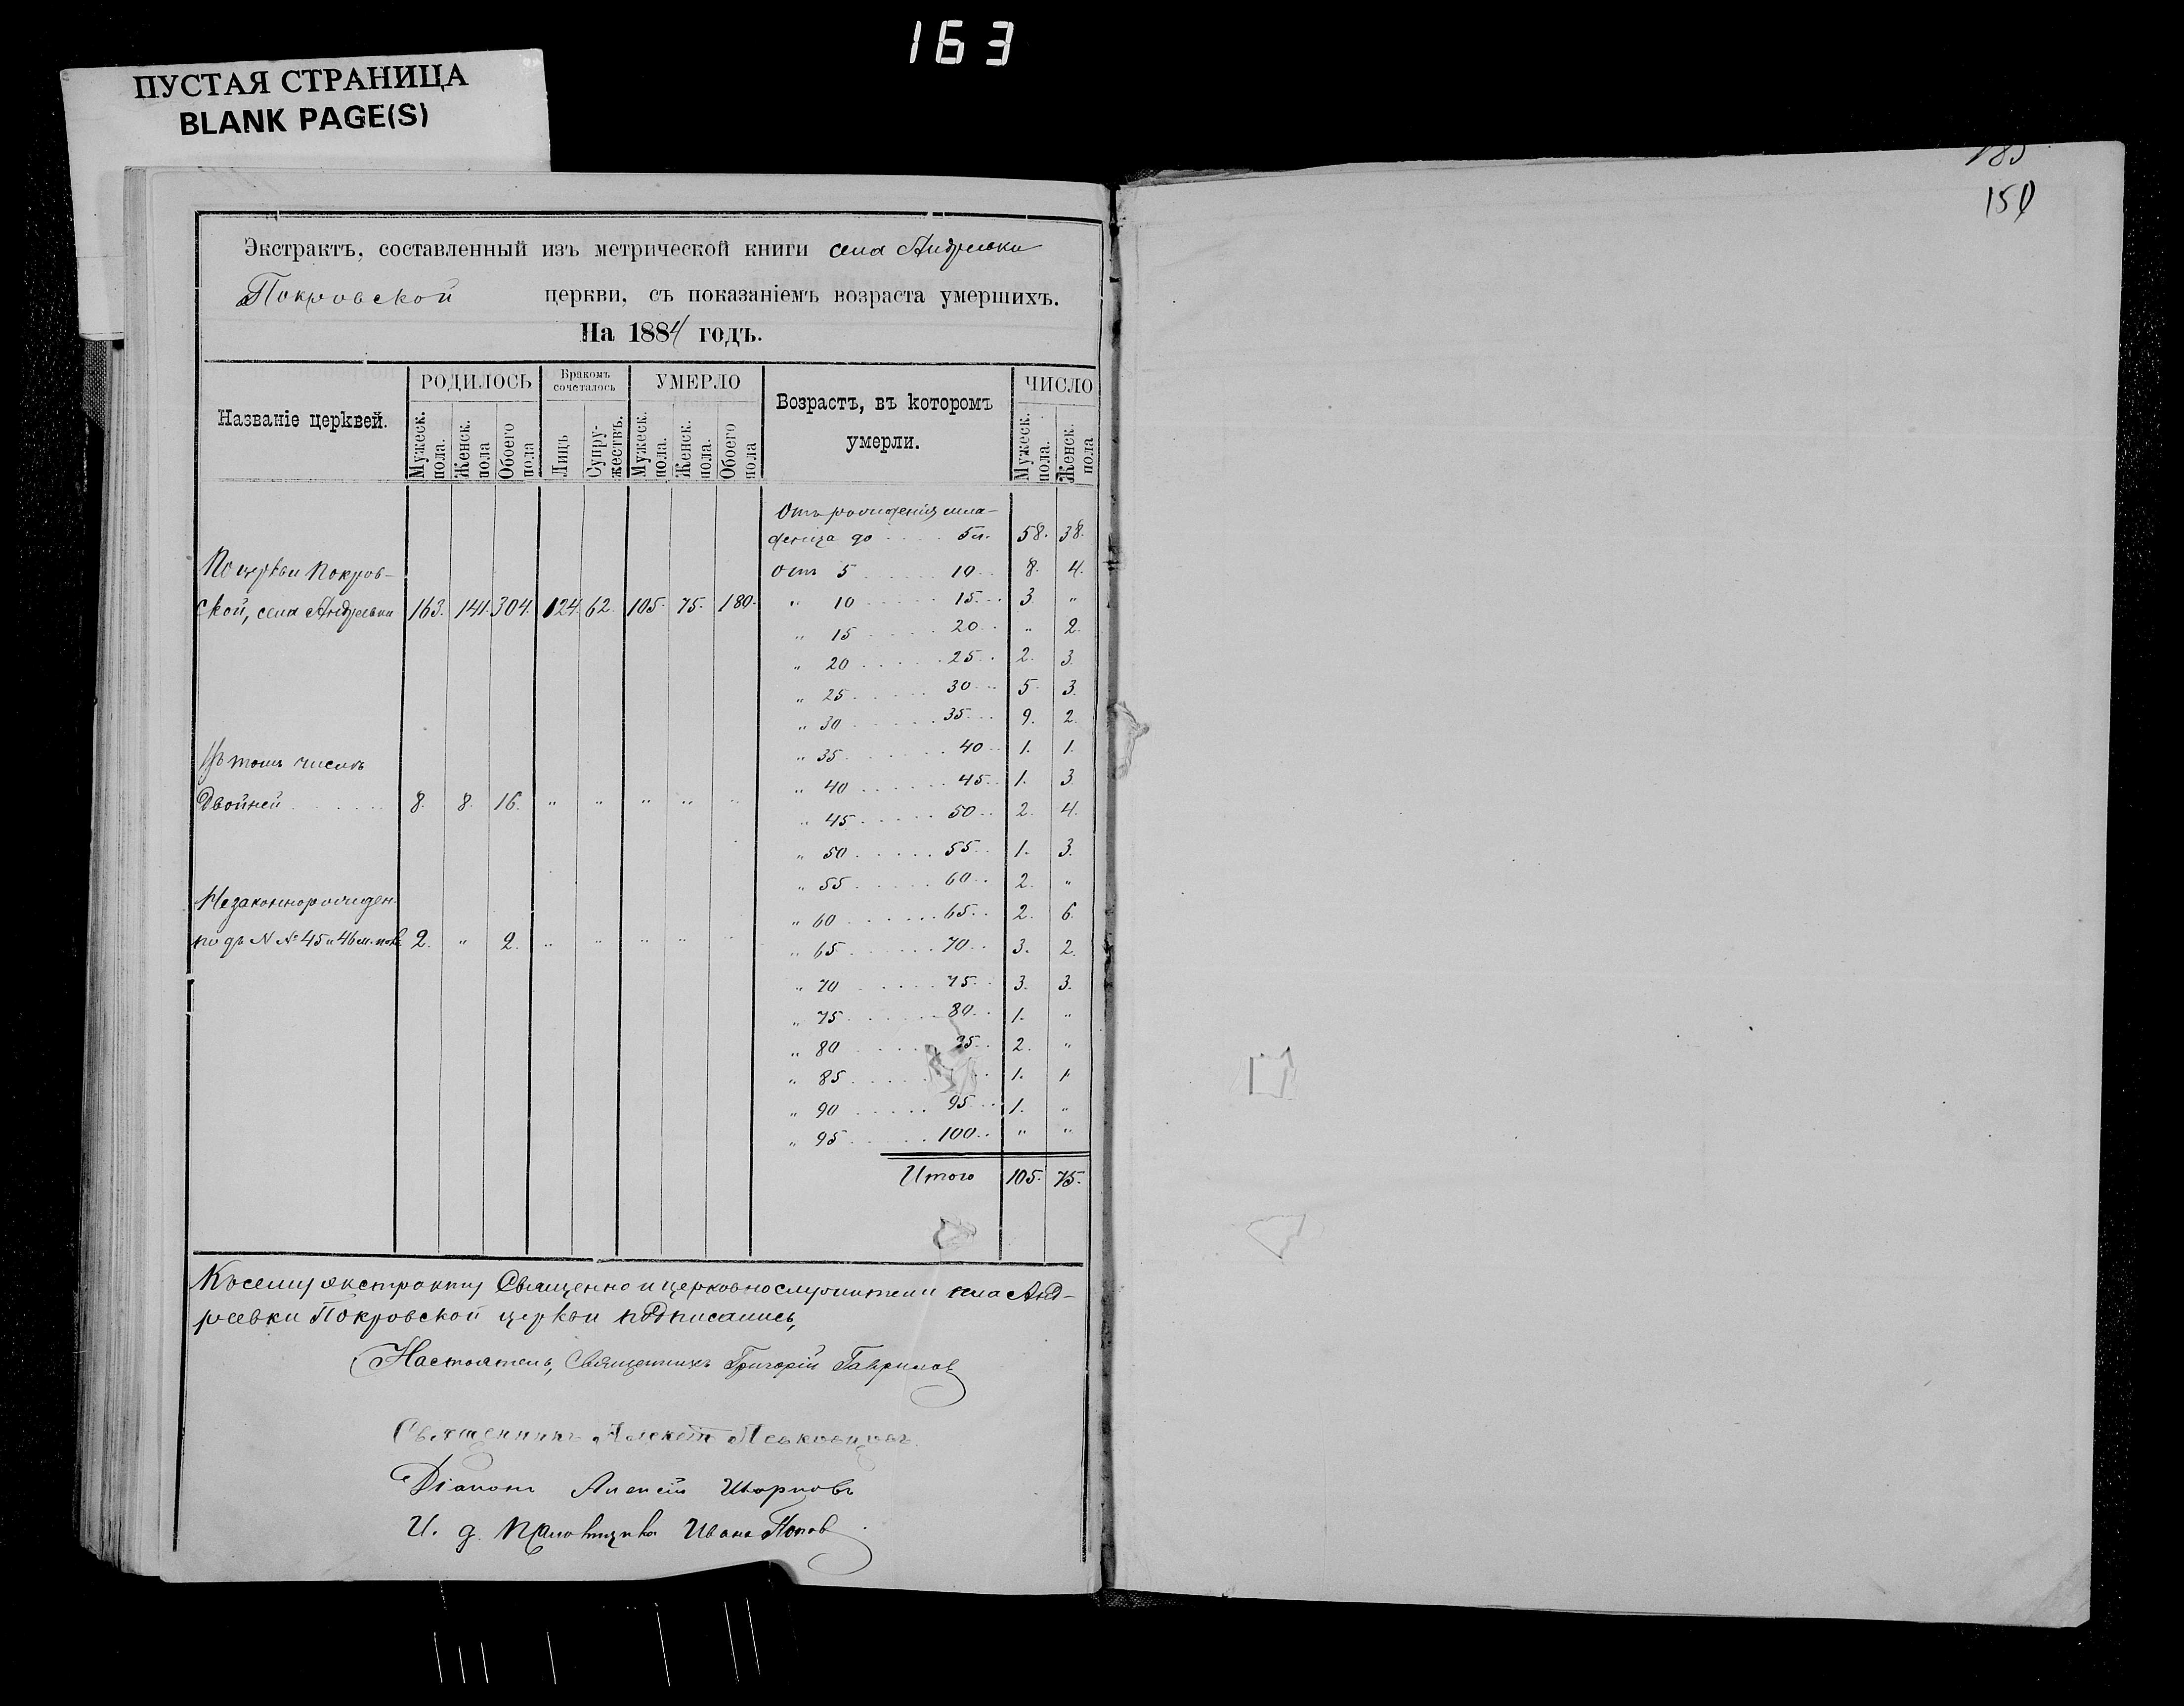 163
ПУСТАЯ СТРАНИЦА
BLANK PAGE(S)
185
150
Экстрактъ, составленный изъ метрической книги села Андреевки
Покровской церкви, съ показаніемъ возраста умершихъ.
На 1884 годъ.
Названіе церквей.
РОДИЛОСЬ
Бракомъ сочеталось
УМЕРЛО
Возрастъ, въ которомъ умерли.
ЧИСЛО
Мужеск. пола. Женск. пола Обоего пола Лицъ Супружествъ. Мужеск. пола. Женск. пола. Обоего пола Мужеск. пола. Женск. пола
Отъ рожденія мла-
денца до 5 л. 58. 38.
По церкви Покров-
ской, села Андреевки 163. 141. 304. 124. 62. 105. 75. 180.
Отъ 5 10 8. 4.
" 10 15 3 "
" 15 20 " 2.
" 20 25 2. 3.
" 25 30 5. 3.
" 30 35 9. 2.
" 35 40 1. 1.
" 40 45 1. 3
" 45 50 2. 4.
" 50 55 1. 3.
" 55 60 2. "
" 60 65 2. 6.
" 65 70 3. 2.
" 70 75 3. 3.
" 75 80 1. "
" 80 85 2. "
" 85 1. 1
" 90 95 1. "
" 95 100 " "
Итого 105. 75.
Въ томъ числѣ
Двойней 8. 8. 16. " " " " "
Незаконнорожден.
подъ N№ 45 и 46 м. пол. 2. " 2. " " " " "
Къ сему экстракту Священно и церковнослужители села Анд-
реевки Покровской церкви подписались,
Настоятель, Священникъ Григорій Гаврилов
Священникъ Алексѣй
Діаконъ Алексій
И. д. Псаломщика Иванъ Попов